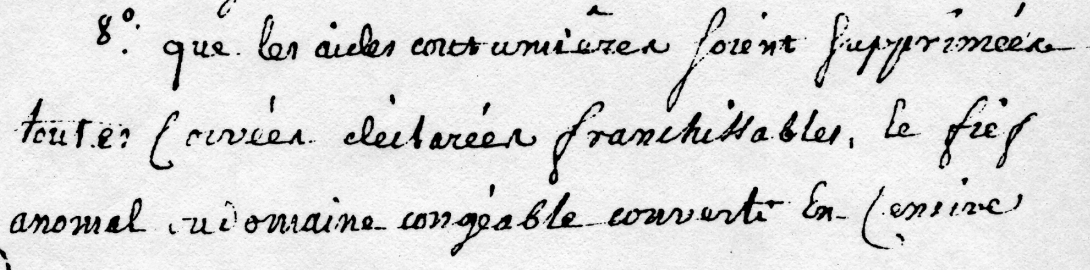 8°. que les aides coutumières soient supprimées
toutes Corvées déclarées franchissables, le fief
anomal ou domaine congéable converti En Censive